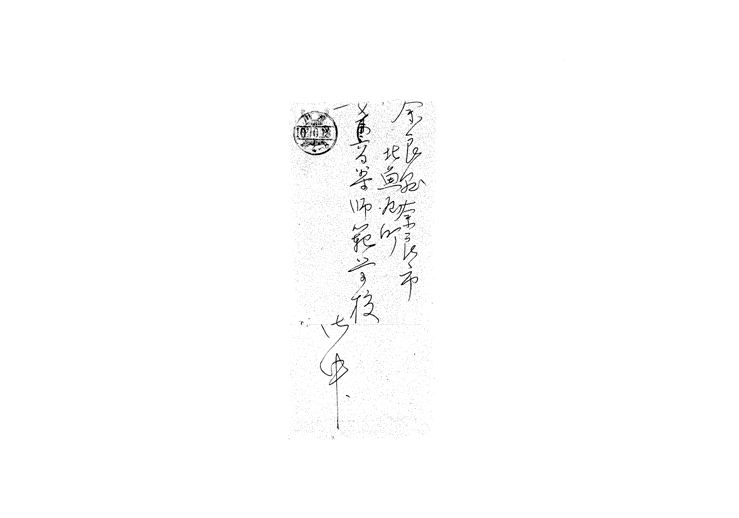 奈良縣奈良市
北魚屋町
女高等師範学校
御中